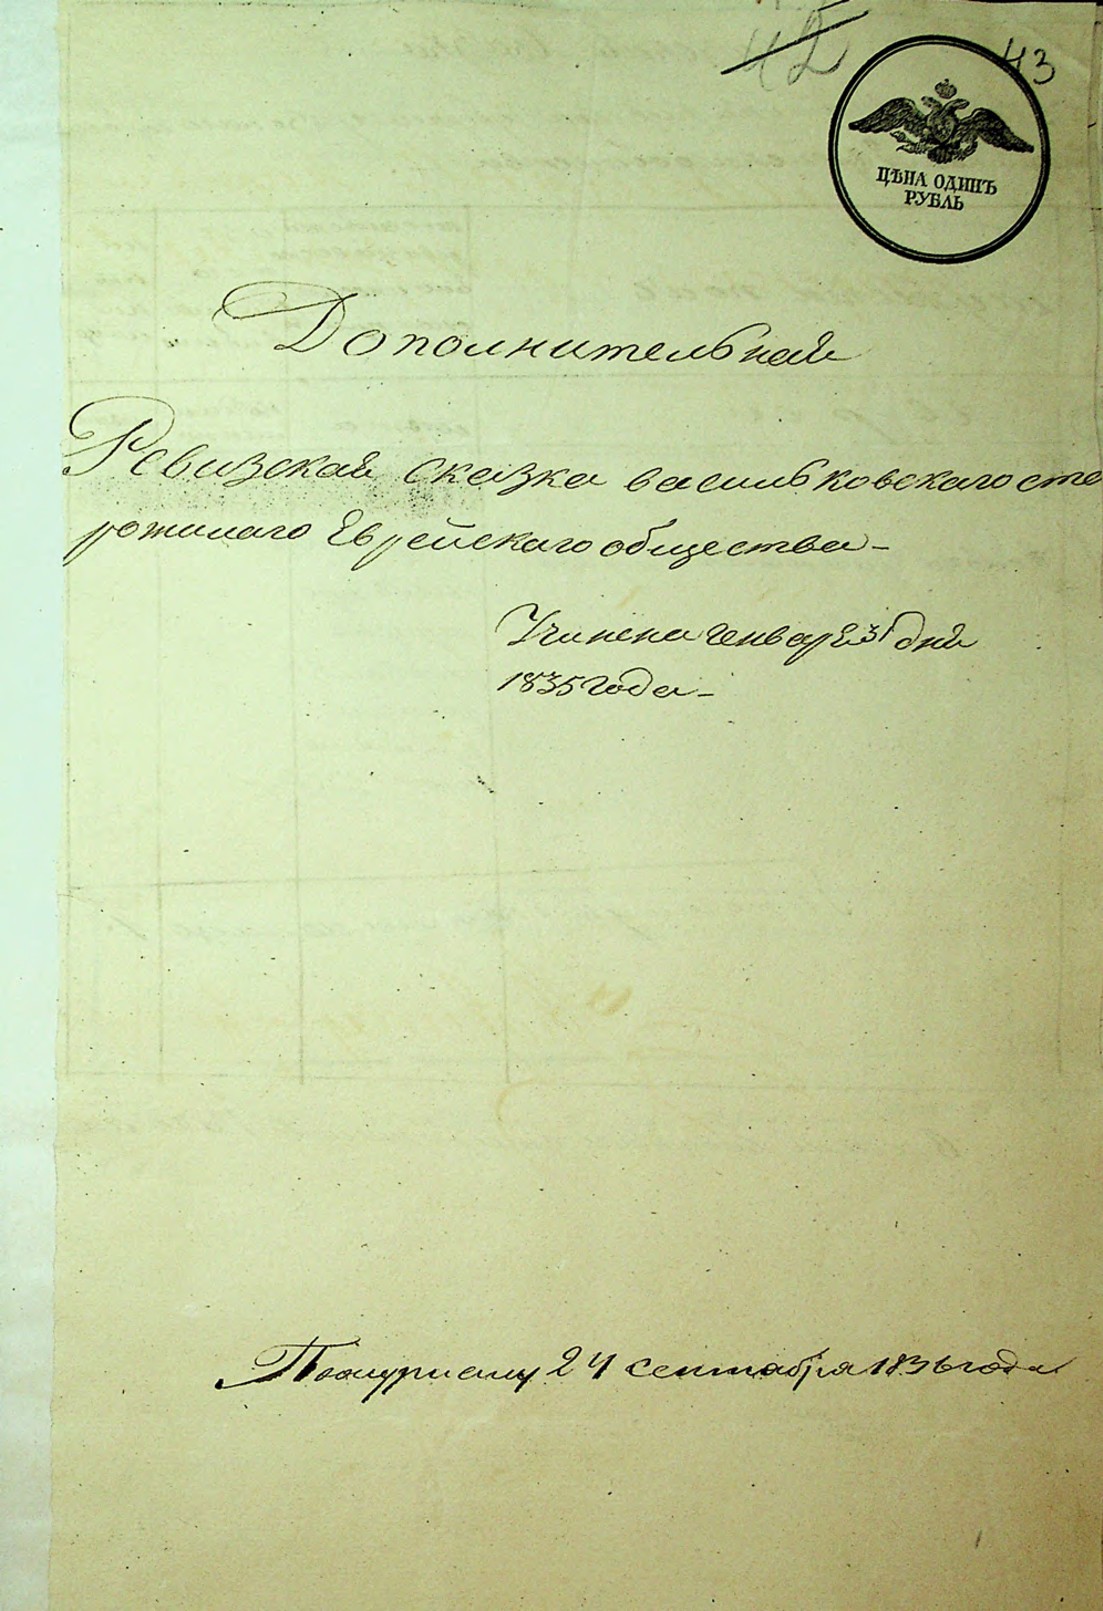 42
43
ЦѢНА ОДИНЪ
РУБЛЬ
Дополнительная
Ревизская сказка васильковскаго ста
рожилаго Еврейскаго общества –
Учинена Генваря 31 дня
1835 года –
24 сентября 1836 года